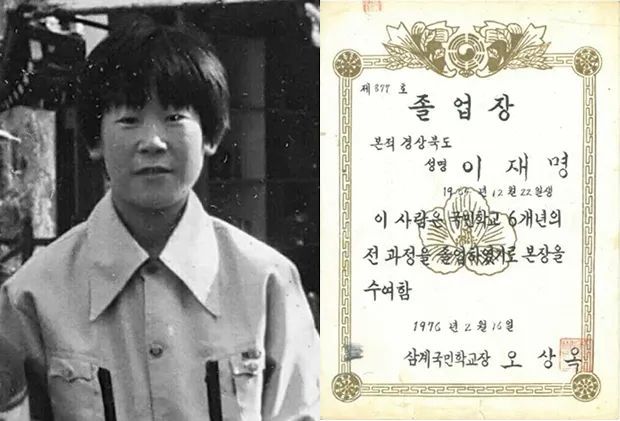 제 377 호
졸업장
본적 경상북도
성명 이재명
19 년 12 월 22 일생
이 사람은 국민학교 6개년의
전 과정을 졸업하였기로 본장을
수여함
1976 년 2 월 16 일
삼계국민학교장 오상옥